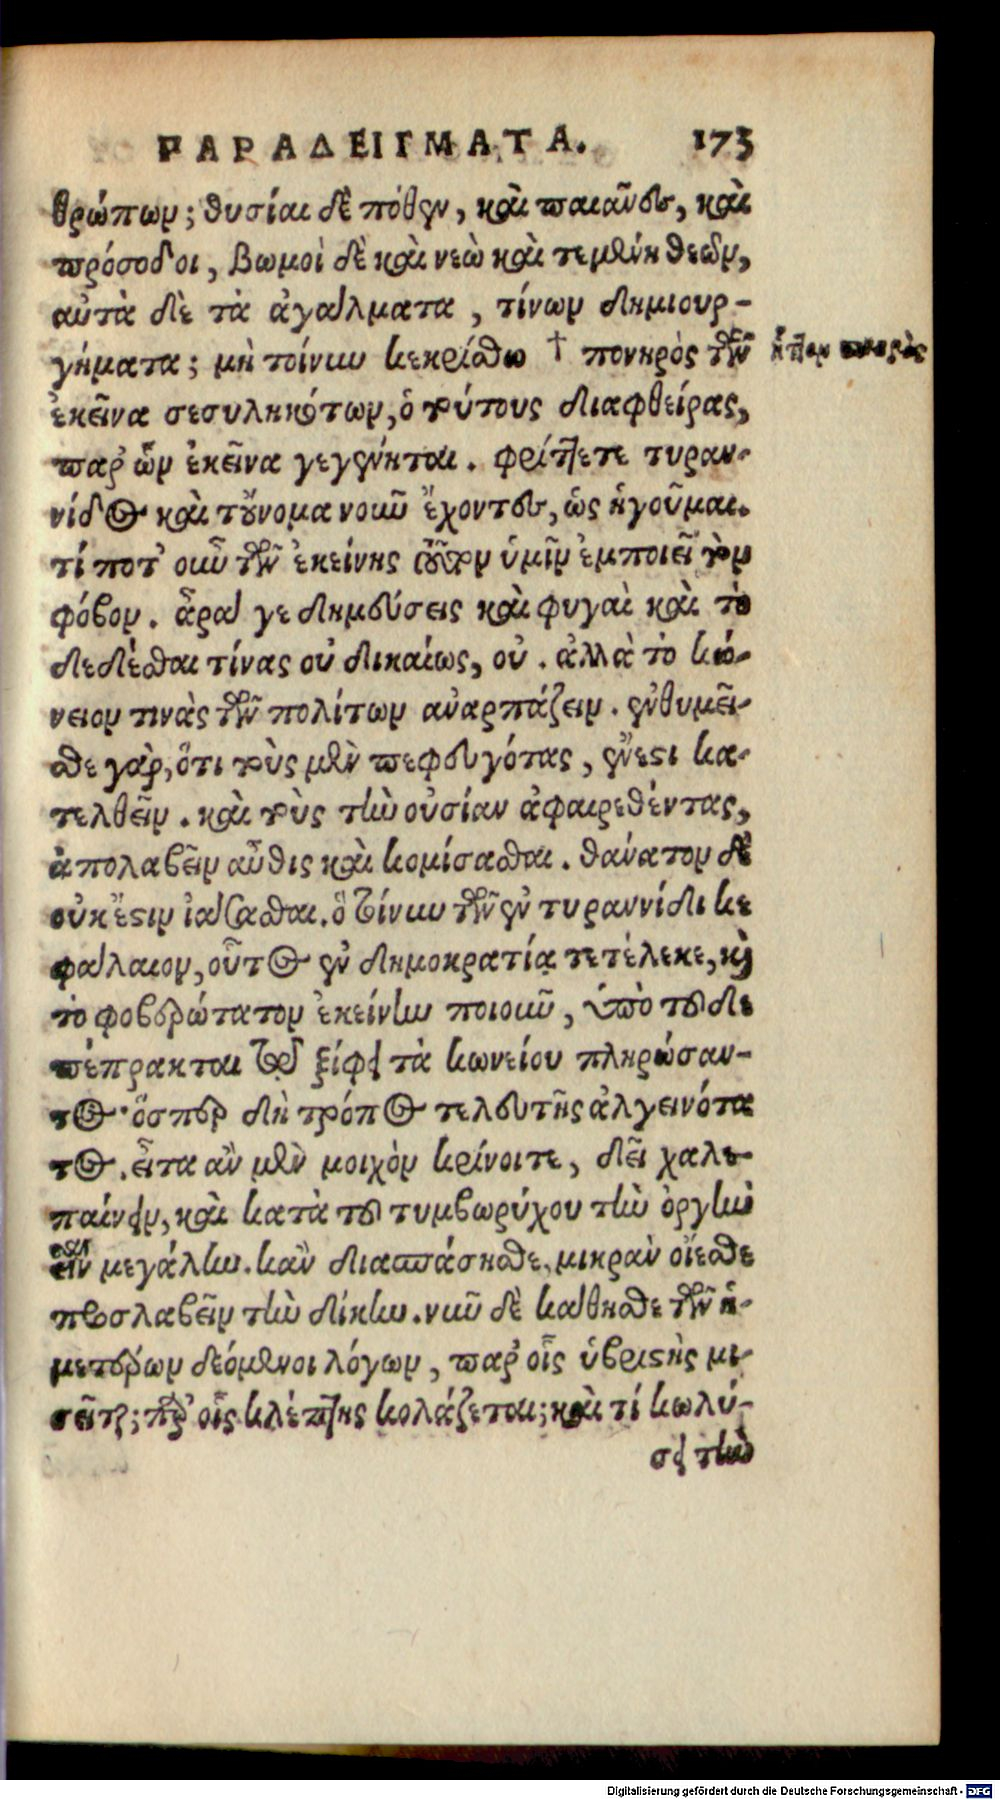 ΠΑΡΑΔΕΙΓΜΑΤΑ. 173
θρώπων; θυσίαι δὲ πόθεν, καὶ παιᾶνες, καὶ
πρόσοδοι, βωμοὶ δὲ καὶ νεῲ καὶ τεμένη θεῶν,
αὐτὰ δὲ τὰ ἀγάλματα, τίνων δημιουρ-
γήματα; μὴ τοίνυν κεκρίσθω † πονηρὸς τῶν
ἐκεῖνα σεσυληκότων, ὁ τούτους διαφθείρας,
παρ' ὧν ἐκεῖνα γεγένηται. φρίττετε τυραν-
νίδος καὶ τοὔνομα νοῦν ἔχοντες, ὡς ἡγοῦμαι.
τί ποτ' οὖν τῶν ἐκείνης τοῦτον ὑμῖν ἐμποιεῖ τὸν
φόβον. ἆρά γε δημεύσεις καὶ φυγαὶ καὶ τὸ
δεδέσθαι τίνας οὐ δικαίως, οὐ. ἀλλὰ τὸ κώ-
νειον τινὰς τῶν πολίτων ἀναρπάζειν. ἐνθυμεῖ-
σθε γὰρ, ὅτι τοὺς μὲν πεφευγότας, ἔνεστι κα-
τελθεῖν. καὶ τοὺς τὴν οὐσίαν ἀφαιρεθέντας,
ἀπολαβεῖν αὖθις καὶ κομίσασθαι. θάνατον δὲ
οὐκ ἔστιν ἰάσασθαι. ὃ τοίνυν τῶν ἐν τυραννίδι κε
φάλαιον, οὗτος ἐν δημοκρατίᾳ τετέλεκε, καὶ
τὸ φοβερώτατον ἐκείνην ποιοῦν, ὑπὸ τοῦδε
πέπρακται τοῦ ξίφει τὰ κωνείου πληρώσαν-
τος· ὅσπερ δὴ τρόπος τελευτῆς ἀλγεινότα
τος. εἶτα ἂν μὲν μοιχὸν κρίνοιτε, δεῖ χαλε-
παίνειν, καὶ κατὰ τοῦ τυμβωρύχου τὴν ὀργὴν
εἶναι μεγάλην. κἂν διασπάσησθε, μικρὰν οἴεσθε
προσλαβεῖν τὴν δίκην. νῦν δὲ κάθησθε τῶν ἡ-
μετέρων δεόμενοι λόγων, παρ' οἷς ὑβριστὴς μι-
σεῖται; παρ' οἷς κλέπτης κολάζεται; καὶ τί κωλύ-
σει τὴν
Digitalisierung gefördert durch die Deutsche Forschungsgemeinschaft - DFG